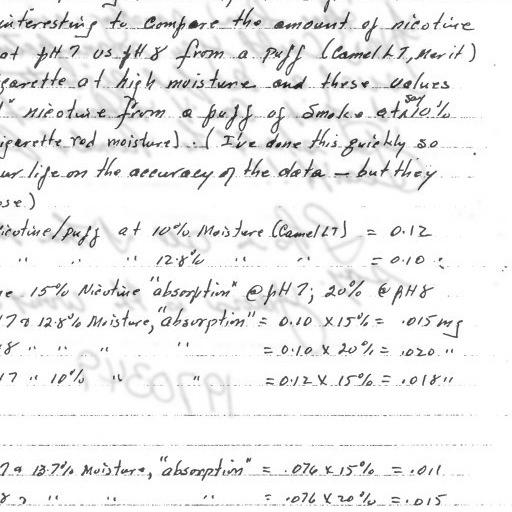 interesting to compare the amount of nicotine
at pH 7 vs pH 8 from a puff (Camel LT, Merit)
garette at high moisture and these values
" nicotine from a puff of smoke at say 10%
igarette rod moisture). (I've done this quickly so
ur life on the accuracy of the data — but they
ose.)
icotine/puff at 10% Moisture (Camel LT) = 0.12
" " " 12.8% " " = 0.10
e 15% Nicotine "absorption" @ pH 7; 20% @ pH 8
7 @ 12.8% Moisture, "absorption" = 0.10 X 15% = .015 mg
8 " " " " = 0.10 X 20% = .020 "
7 " 10% " " = 0.12 X 15% = .018 "
7 @ 13.7% Moisture, "absorption" = .076 X 15% = .011
8 " " " = .076 X 20% = .015